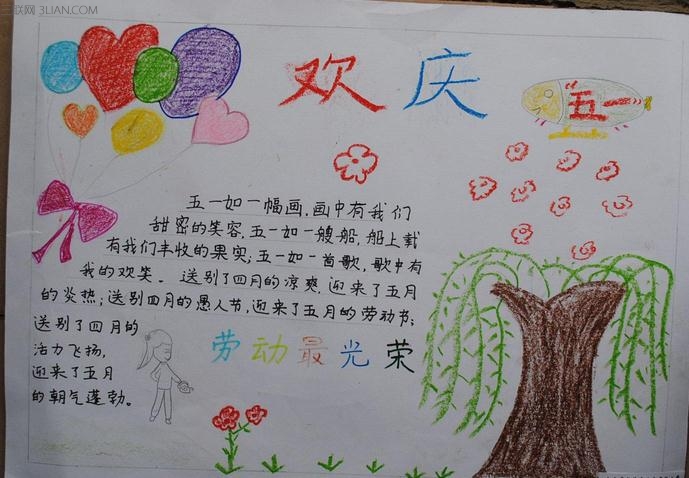 联网 3LIAN.COM
欢庆
“五一”
五一如一幅画,画中有我们
甜密的笑容;五一如一艘船,船上载
有我们丰收的果实;五一如一首歌,歌中有
我的欢笑。送别了四月的凉爽,迎来了五月
的炎热;送别四月的愚人节,迎来了五月的劳动节;
送别了四月的
活力飞扬,
迎来了五月
的朝气蓬勃。
劳动最光荣